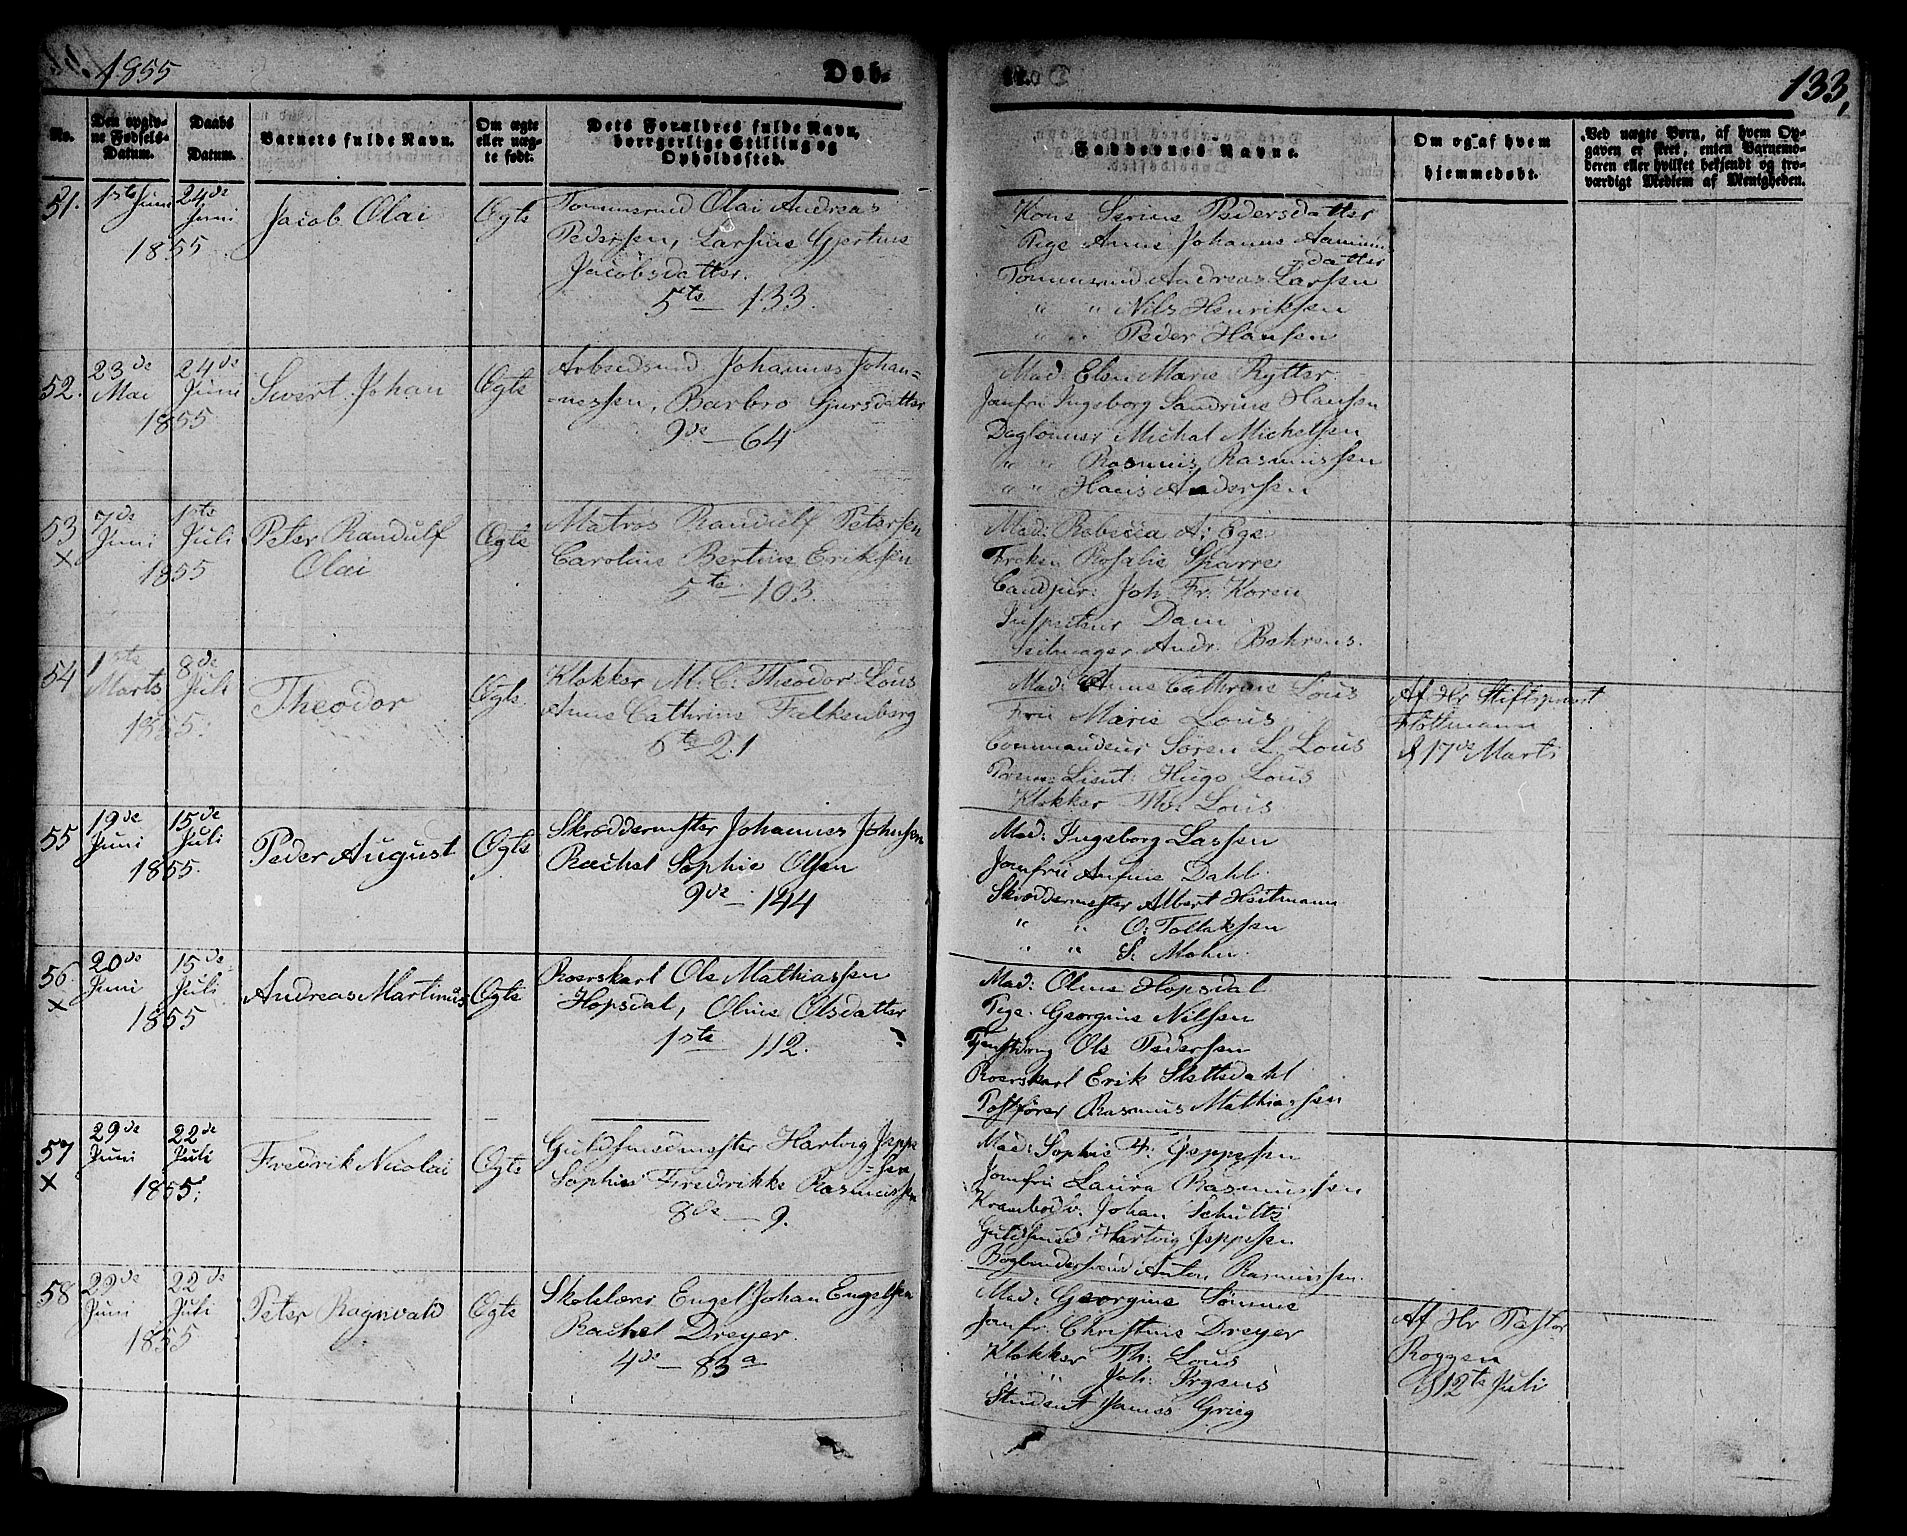 1855
Døb-
133,
No.
Den opgiv-
ne Fødsels-
Datum.
Daabs
Datum.
Barnets fulde Navn.
Om ægte
eller næg-
te født.
Dets Forældres fulde Navn,
borgerlige Stilling og
Opholdssted.
Faddernes Navne.
Om og af hvem
hjemmedøbt.
Ved uægte Børn, af hvem Op-
gaven er skeet, enten Barnemo-
deren eller hvilket bekjendt og tro-
værdigt Medlem af Menigheden.
51.
1ste Juni
24de
Juni
1855
Jacob Olai
Ægte
Tømmermd Olai Andreas
Pedersen, Larsine Gjertine
Jacobsdatter.
5te - 133.
Kone Serine Pedersdatter
Pige Anne Johanne
datter
Tømmermd Andreas Larsen
" " Nils Henriksen
" " Peder Hansen
52.
23de
Mai
24de
Juni
1855
Sivert Johan
Ægte
Arbeidsmd. Johannes Johan-
-nessen, Barbro Gjursdatter
9de - 64
Mad. Elen Marie Rytter
Jomfru Ingeborg Sandrine Hansen
Daglønner Michal Michelsen
" " Rasmus Rasmussen
" " Hans Andersen
53
x
7de
Juni
1ste
Juli
1855
Peter Randulf
Olai
Ægte
Matros Randulf Petersen
Caroline Bertine Eriksen
5te - 103.
Mad: Rebecca A: Ege
Frøken Rosalie Sparre
Candjur: Joh. Fr. Koren
Inspecteur Dam
Seilmager Andr. Behrens.
54
1ste
Marts
8de
Juli
1855.
Theodor
Ægte.
Klokker M. C. Theodor Lous
Anne Cathrine Falkenberg
6te 21
Mad: Anne Cathrine Lous
Fru Marie Lous
Commandeur Søren L. Lous
Prem: Lieut: Hugo Lous
Klokker Th: Lous
Af Hr Stiftsprovst
Flottmann
d 17de Marts
55
19de
Juni
15de
Juli
1855.
Peder August
Ægte
Skræddermester Johannes Johnsen
Rachel Sophie Olsen
9de - 144
Mad: Ingeborg Lassen
Jomfru Dahl
Skræddermester Albert Heitmann
" " O: Tollaksen
" " S. Mohn.
56.
x
20de
Juni
15de
Juli
1855
Andreas Martinus
Ægte
Roerskarl Ole Mathiassen
Hopsdal, Oline Olsdatter
1ste 112.
Mad: Oline Hopsdal
Pige. Georgine Nilsen
Tjenstdreng Ole Pedersen
Roerskarl Erik Slettedahl
Postfører Rasmus Mathiassen
57
x
29de
Juni
22de
Juli
1855.
Fredrik Nicolai
Ægte
Guldsmedmester Hartvig Jeppe
-sen
Sophie Frederikke Rasmussen
8de - 9.
Mad: Sophie H. Jeppesen
Jomfru Laura Rasmussen
Krambodsv. Johan Schults
Guldsmed Hartvig Jeppesen
Bogbindersvend Anton Rasmussen.
58
22de
Juni
22de
Juli
1855
Peter Ragnvald
Ægte
Skolelærer Engel Johan Engelsen
Rachel Dreyer.
4de - 83a
Mad: Georgine Sømme
Jomfr. Christine Dreyer
Klokker Th: Lous
" " Joh. Irgens
Student James Grieg
Af Hr Pastor
Roggen
d 12te Juli